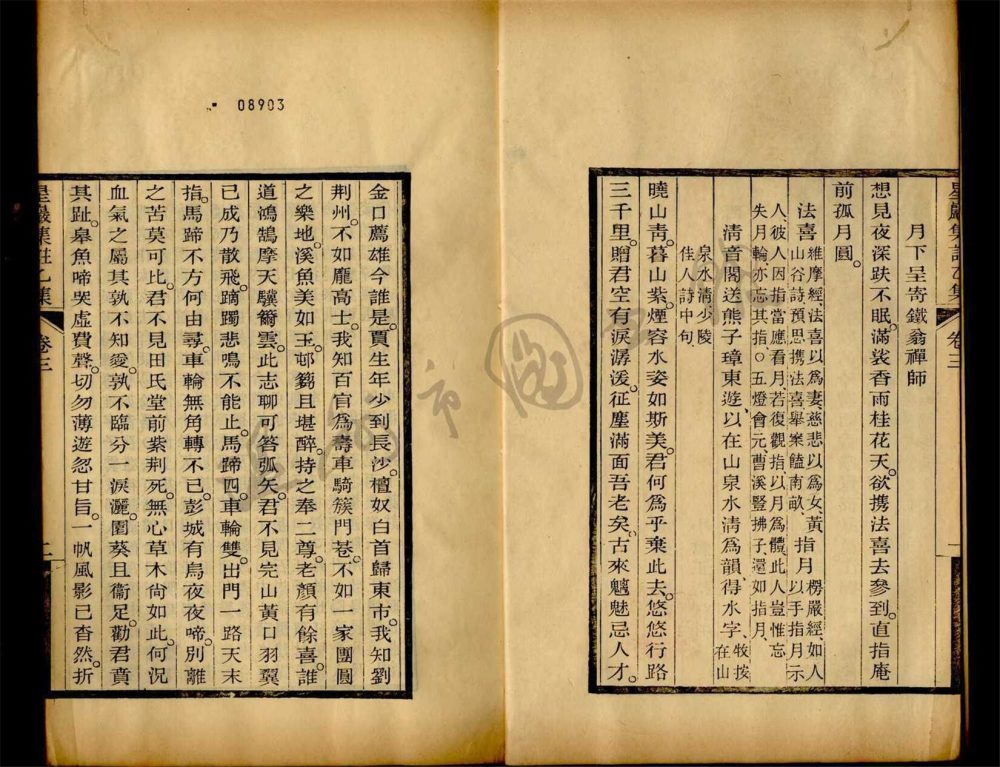 星巖集註乙集 卷三 一
月下呈寄鐵翁禪師
想見夜深趺不眠。滿裳香雨桂花天。欲携法喜去參到。直指庵
前孤月圓。
法喜 維摩經、法喜以為妻慈悲以為女、黃
山谷詩預思携法喜舉案饁南畝、
指月 楞嚴經、如人
以手指月示
人、彼人因指當應看月若復觀指、以月為體此人豈惟忘
失月輪、亦忘其指、○五燈會元、曹溪豎拂子、還如指月、
清音閣送熊子璋東遊、以在山泉水清為韻得水字、 牧按
在山
泉水清、少陵
佳人詩中句、
曉山青。暮山紫。煙容水姿如斯美。君何為乎棄此去。悠悠行路
三千里。贈君空有淚潺湲。征塵滿面吾老矣。古來魑魅忌人才。
08903
金口薦雄今誰是。賈生年少到長沙。檀奴白首歸東市。我知劉
荊州。不如龐高士。我知百官為壽車騎簇門巷。不如一家團圓
之樂地。溪魚美如玉。邨篘且堪醉。持之奉二尊。老顏有餘喜。誰
道鴻鵠摩天驤爾雲。此志聊可答弧矢。君不見完山黃口羽翼
已成乃散飛。蹢躅悲鳴不能止。馬蹄四。車輪雙。出門一路天末
指。馬蹄不方何由尋。車輪無角轉不已。彭城有烏夜夜啼。別離
之苦莫可比。君不見田氏堂前紫荆死。無心草木尚如此。何況
血氣之屬其孰不知愛。孰不臨分一淚灑。園葵且衞足。勸君賁
其趾。皋魚啼哭虛費聲。切勿薄遊忽甘旨。一帆風影已杳然折
星巖集註乙集 卷三 二